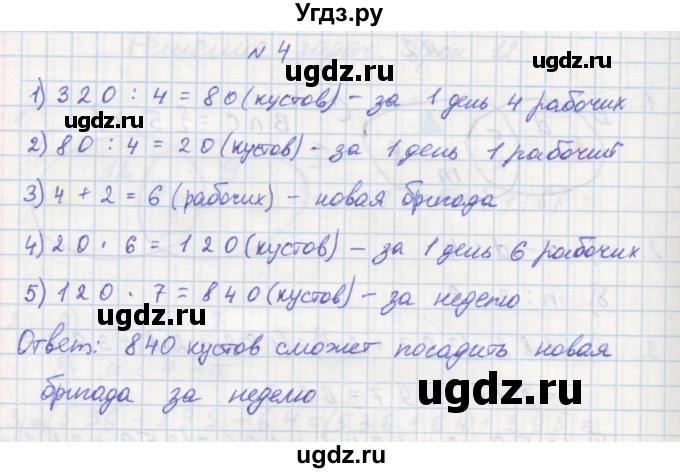 Угдз.ру
№ 4
ugdz.ru ugdz.ru
1) 320 : 4 = 80 (кустов) – за 1 день 4 рабочих
2) 80 : 4 = 20 (кустов) – за 1 день 1 рабочий
ugdz.ru ugdz.ru
3) 4 + 2 = 6 (рабочих) – новая бригада
4) 20 · 6 = 120 (кустов) – за 1 день 6 рабочих
5) 120 · 7 = 840 (кустов) – за неделю
ugdz.ru ugdz.ru
Ответ: 840 кустов сможет посадить новая
бригада за неделю
ugdz.ru ugdz.ru
Угдз.ру